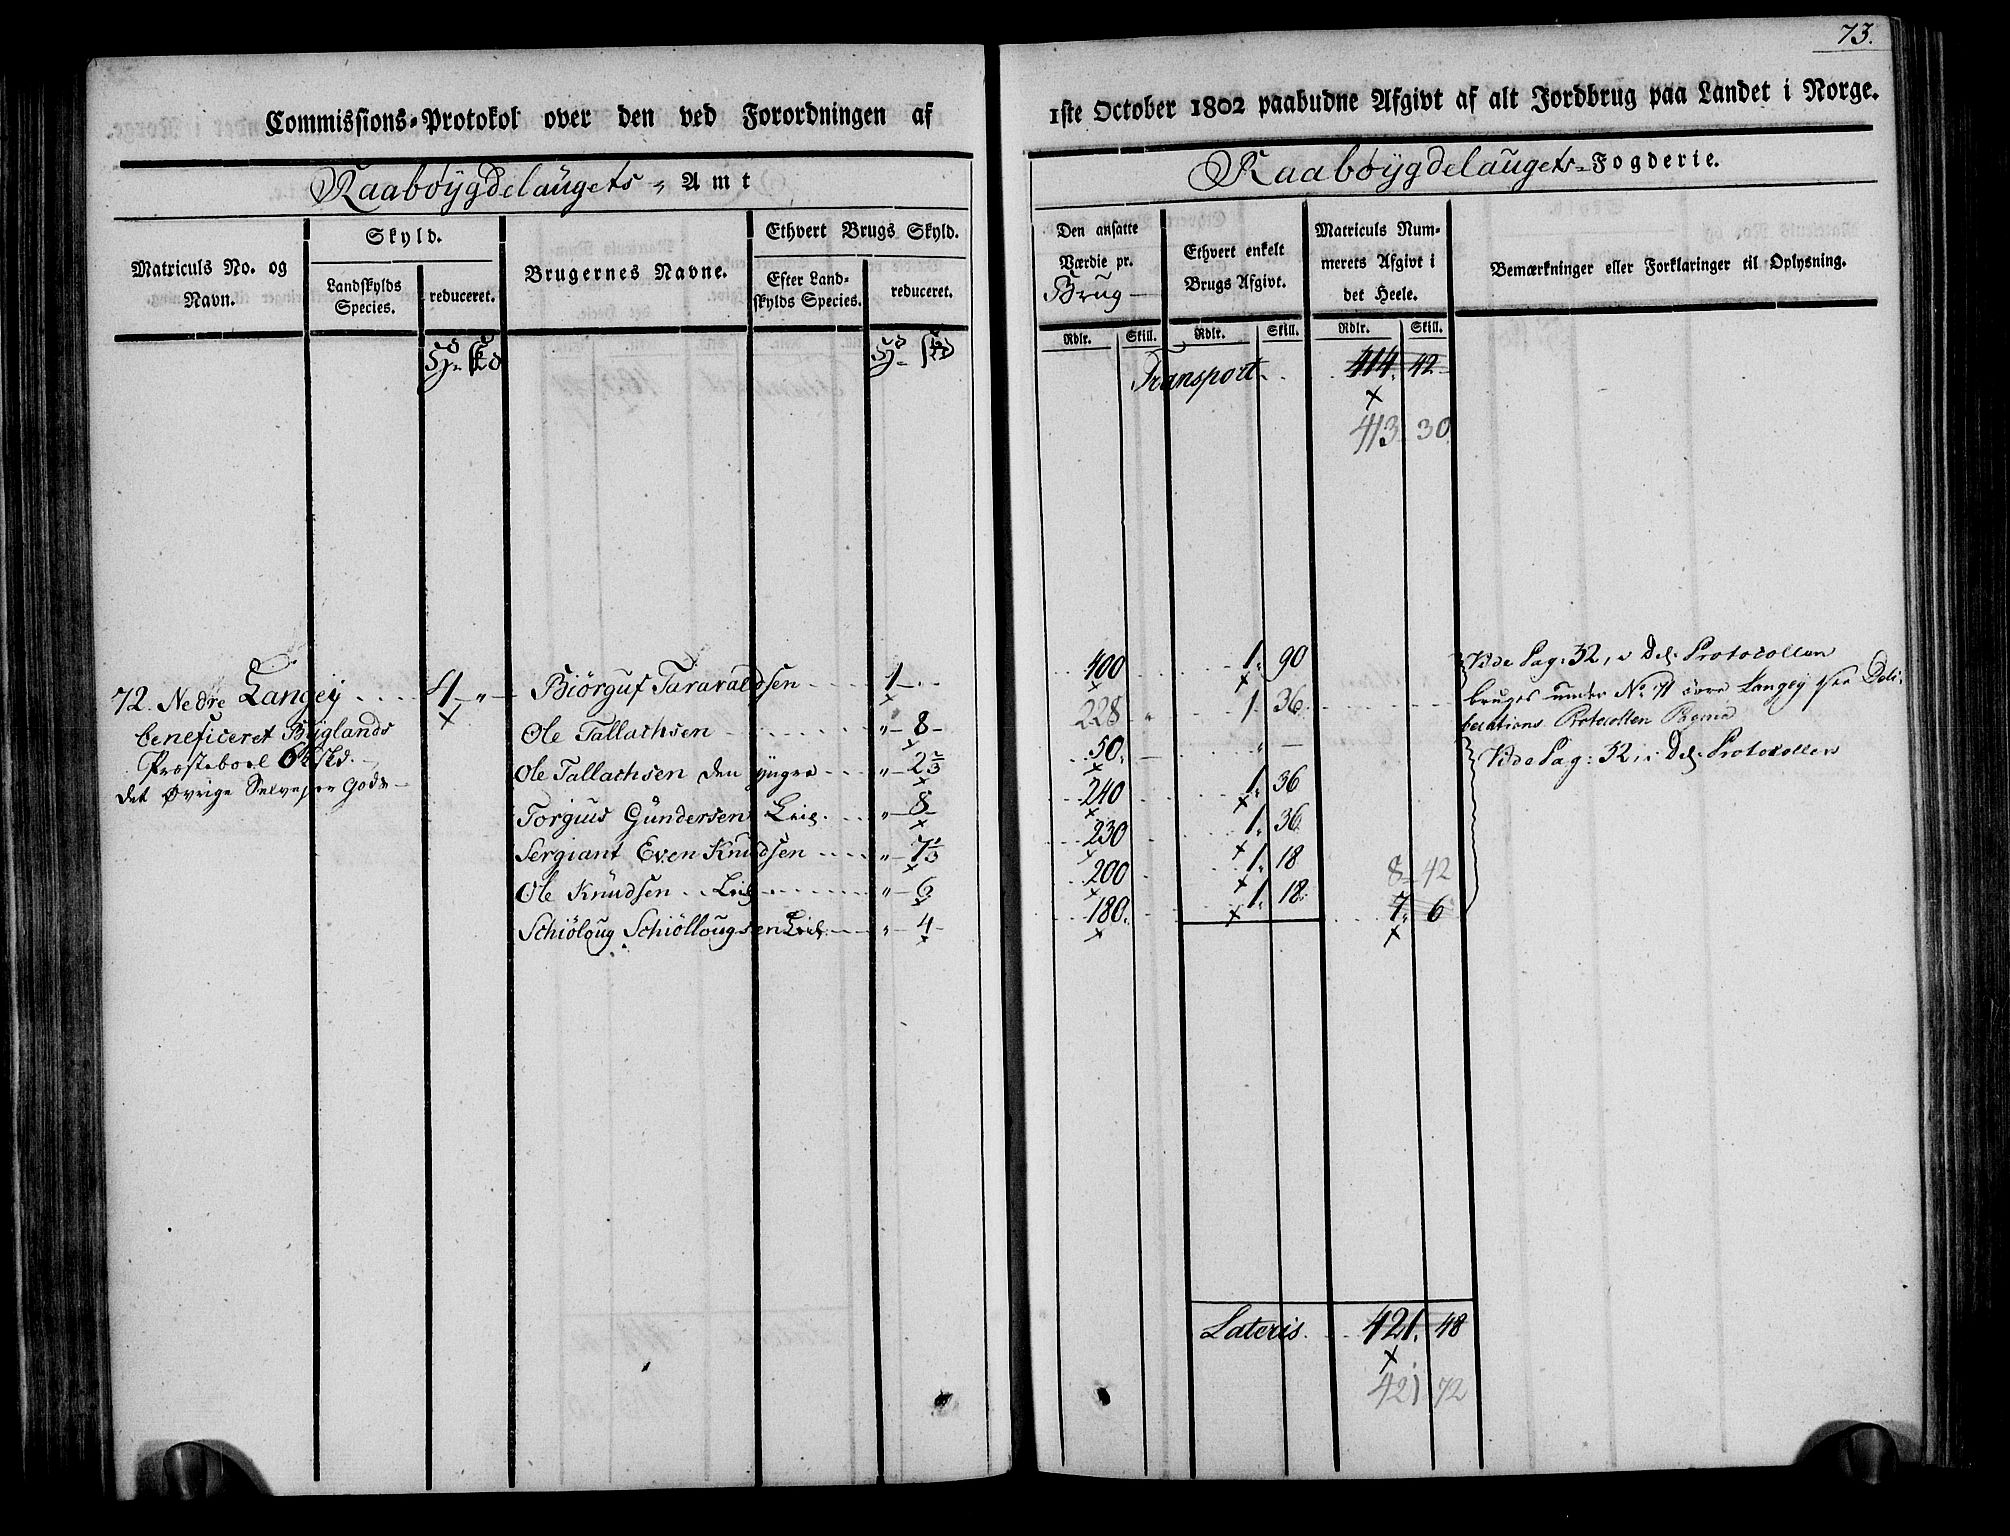 73.
Commissions-Protokol over den ved Forordningen af
1ste October 1802 paabudne Afgivt af alt Jordbrug paa Landet i Norge.
Raabøygdelaugets Amt
Raabøygdelaugets Fogderie.
Matriculs No. og Navn.
Skyld.
Landskylds Species.
reduceret.
Brugernes Navne.
Ethvert Brugs Skyld.
Efter Landskylds Species.
reduceret.
Den ansatte Værdie pr. Brug
Ethvert enkelt Brugs Afgivt.
Matriculs Nummerets Afgivt i det Heele.
Bemærkninger eller Forklaringer til Oplysning.
Rdlr. Skill. Rdlr. Skill. Rdlr. Skill.
Transport 414. 42
413 30
72. Nedre Langey 4 "
beneficeret Byglands
Præsteboel
det Øvrige
Biørguf Taravaldsen 1 - 400 1. 90
Ole Tallachsen " 8 228 1 36
Ole Tallachsen den yngre " 2 2/3 50. "
Torgius Gundersen Leil. " 8 240 1. 36
Sergiant Even Knudsen " 7 1/3 230 1. 36
Ole Knudsen Leil. " 6 200 1. 18
Schiøloug Schiøllougsen Leil. " 4 180. 1. 18
8 42
7. 6
Vide Pag: 32, i Del. Protocollen
bruges under No 71 øvre Langey Deli-
berations Protocollen
Vide Pag: 32, i Del. Protocollen
Lateris 421. 48
421 72